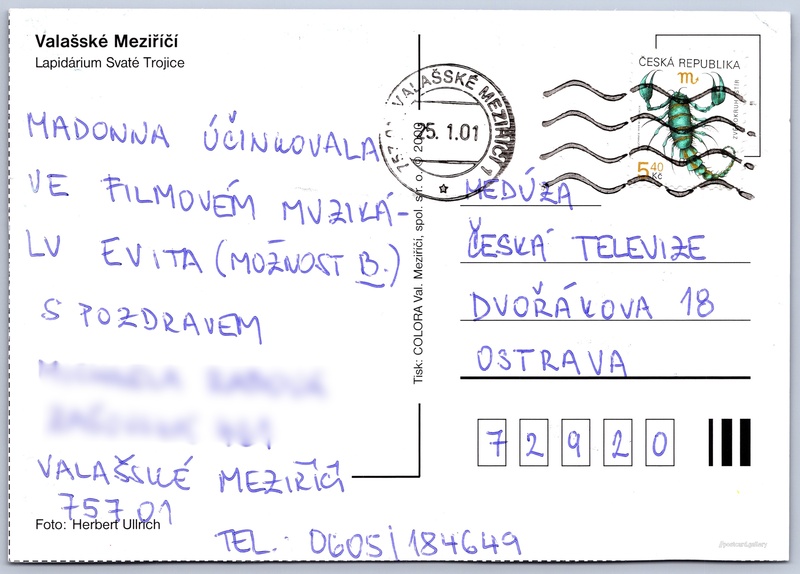 Valašské Meziříčí
Lapidárium Svaté Trojice
MADONNA ÚČINKOVALA
VE FILMOVÉM MUZIKÁ-
LU EVITA (MOŽNOST B.)
S POZDRAVEM
VALAŠSKÉ MEZIŘÍČÍ
757 01
Foto: Herbert Ullrich
TEL.: 0605/184649
Tisk: COLORA Val. Meziříčí, spol. s r. o. © 2000
VALAŠSKÉ MEZIŘÍČÍ 1
757 01
25.1.01
ČESKÁ REPUBLIKA
5,40
Kč
MEDÚZA
ČESKÁ TELEVIZE
DVOŘÁKOVA 18
OSTRAVA
72920